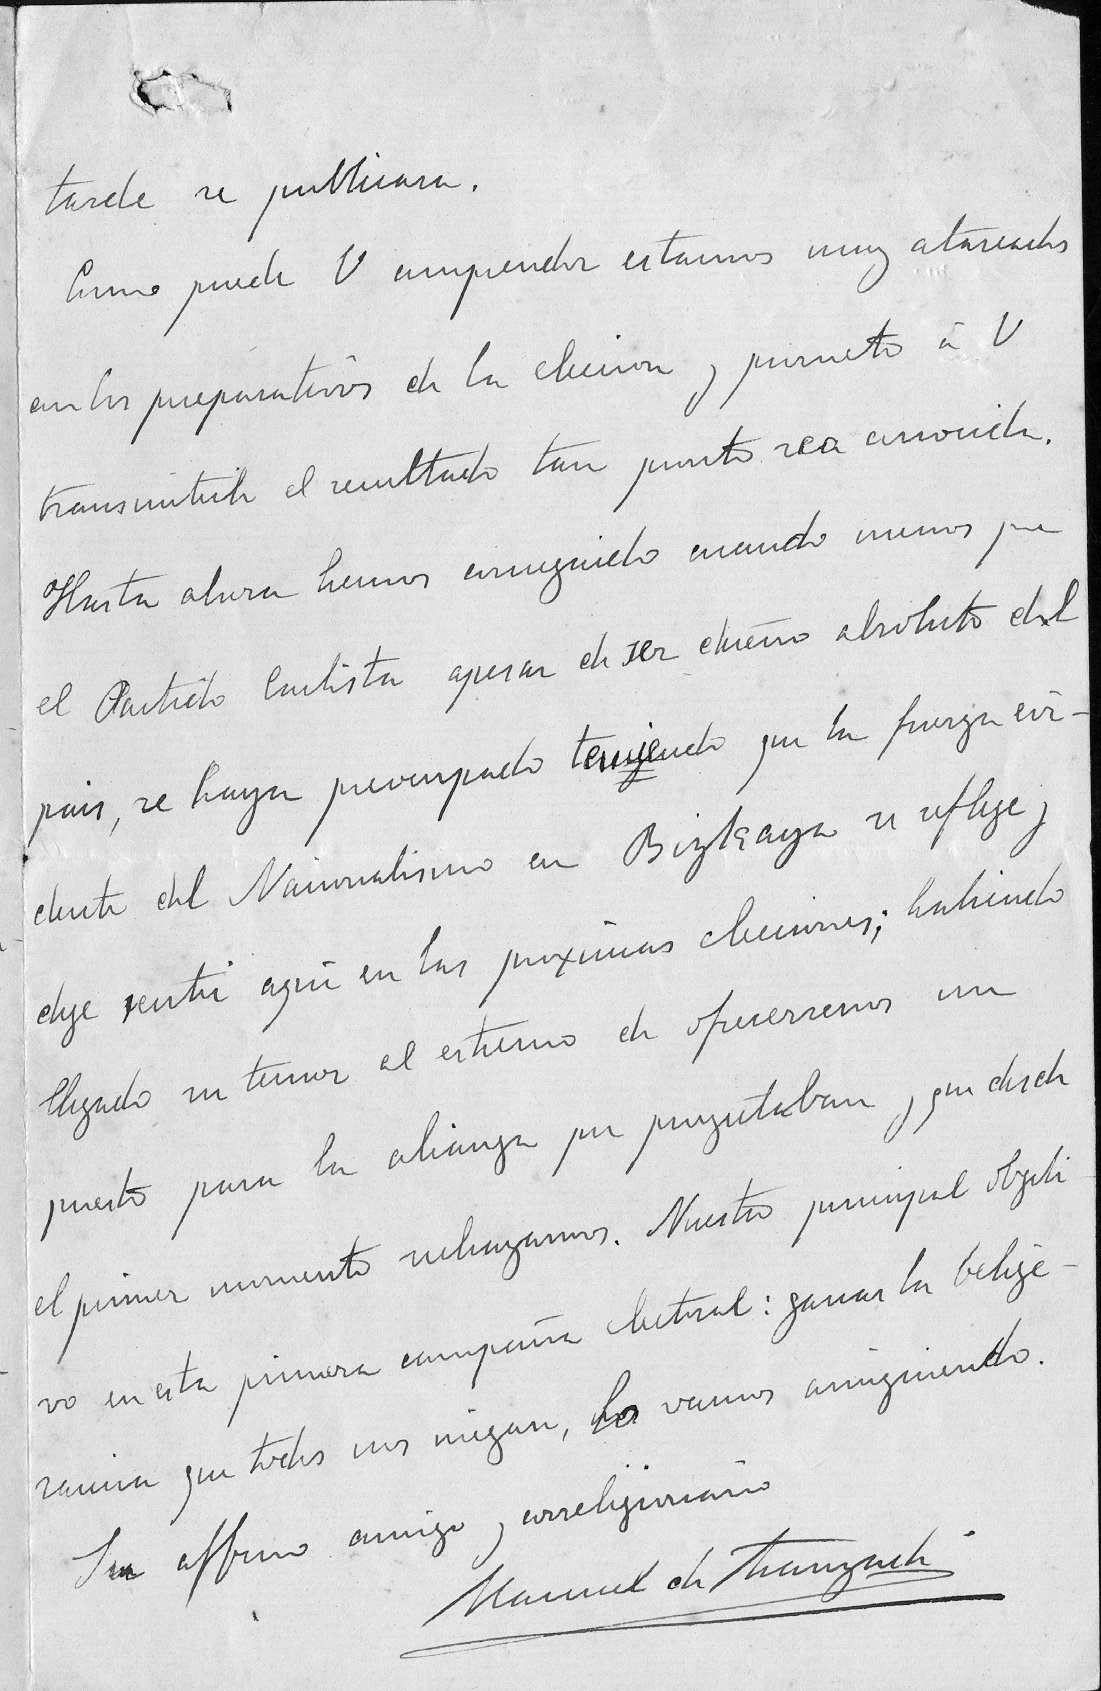 tarde se publicara.
Como puede V comprender estamos muy atareados
con los preparativos de la eleccion y prometo á V
transmitirle el resultado tan pronto sea conocido.
Hasta ahora hemos conseguido cuando menos que
el Partido Carlista apesar de ser dueño absoluto del
pais, se haya preocupado temiendo que la fuerza cre-
ciente del Nacionalismo en Bizkaya se refleje y
deje sentir aqui en las proximas elecciones; habiendo
llegado su temor al estremo de ofrecernos un
puesto para la alianza que proyectaban y que desde
el primer momento rechazamos. Nuestro principal objeti-
vo en esta primera campaña electoral: ganar la belige-
rancia que todos nos niegan, lo vamos consiguiendo.
Su affmo amigo y correligionario
Manuel de